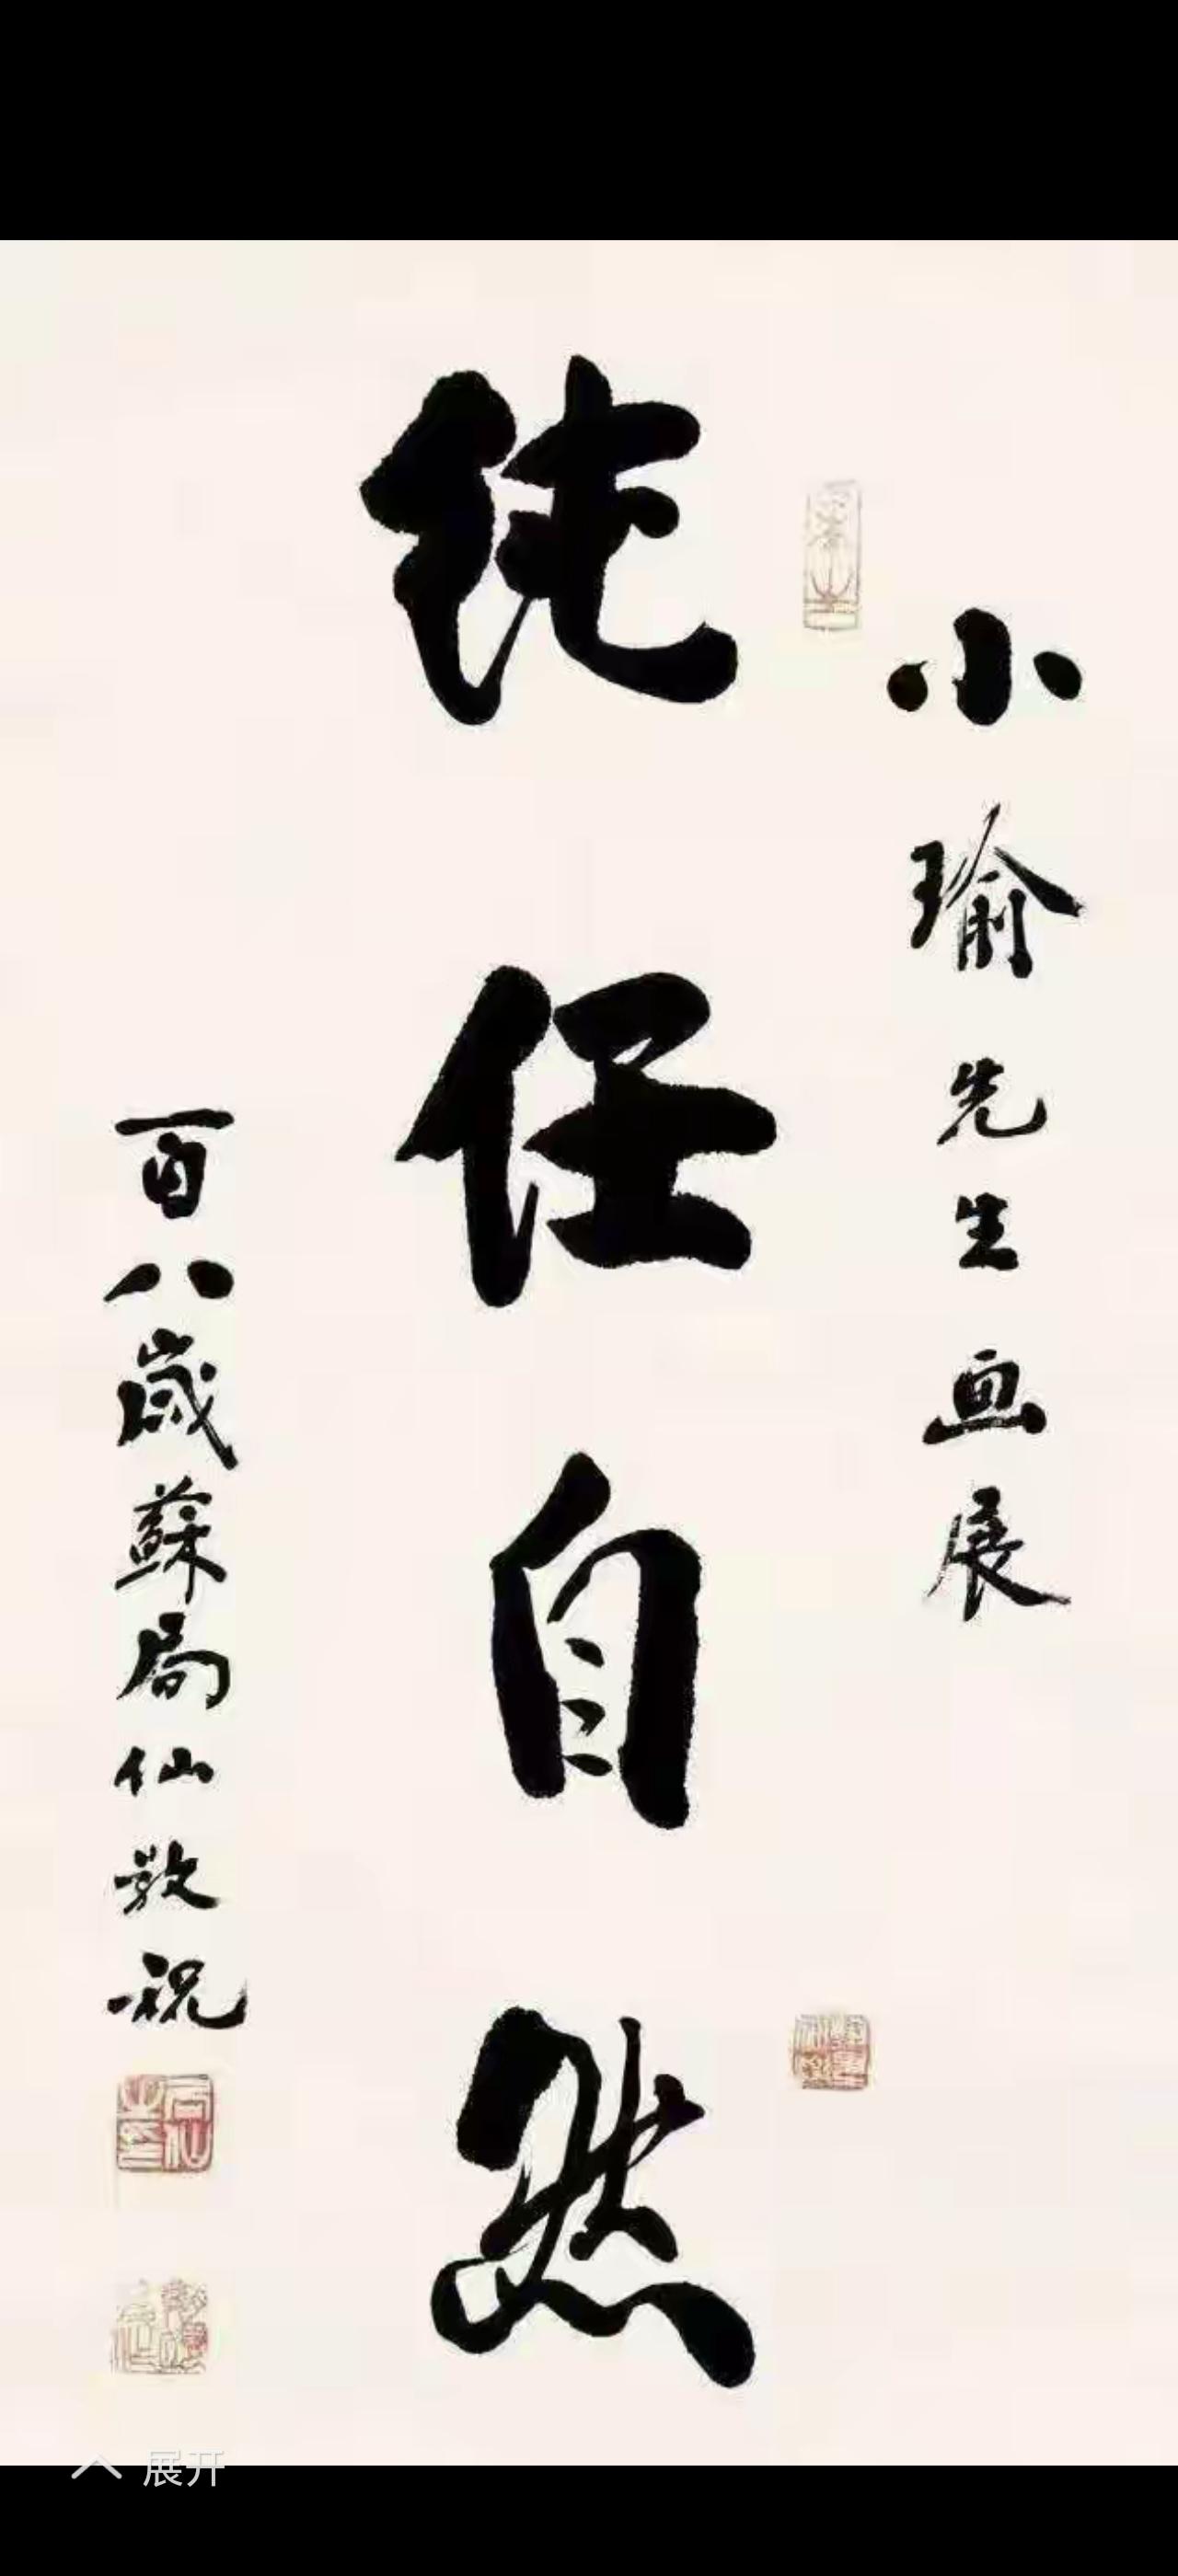 小瑜先生画展
纯任自然
百八歲蘇局仙敬祝
展开